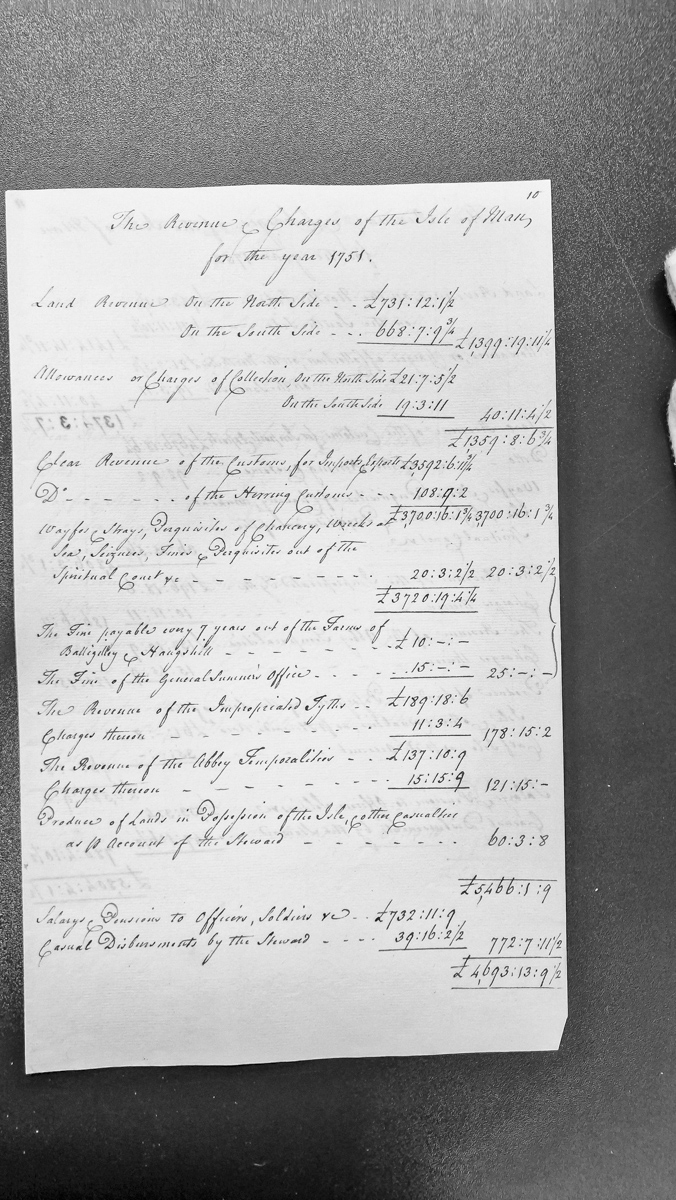 10
The Revenue & Charges of the Isle of Man,
for the year 1751.
Land Revenue On the North Side - - £731:12:1½
On the South Side - - 668:7:9¾ £1,399:19:11¼
Allowances or Charges of Collection, On the North Side £21:7:5½
On the South Side 19:3:11 40:11:4½
£1359:8:6¾
Clear Revenue of the Customs, for Imports, Exports £3592:6:11¾
Do - - - - - - of the Herring Customs - - - 108:9:2
£3700:16:1¾ 3700:16:1¾
Wayfs & Strays, Perquisites of Chancery, Wrecks at
Sea, Seizures, Fines & Perquisites out of the
Spiritual Court &c - - - - - - - - 20:3:2½ 20:3:2½
£3720:19:4¼
The Fine payable every 7 years out of the Farms of
Balligilley & Haugshell - - - - - - - - £10:-:-
The Fine of the General Sumner's Office - - - - 15:-:- 25:-:-
The Revenue of the Impropriated Tyths - - £189:18:6
Charges thereon - - - - - - - 11:3:4 178:15:2
The Revenue of the Abbey Temporalities - - £137:10:9
Charges thereon - - - - - - - 15:15:9 121:15:-
Produce of Lands in Possession of the Isle, & other Casualties
as P Account of the Steward - - - - - - - 60:3:8
£5,466:1:9
Salarys & Pensions to Officers, Soldiers &c - - £732:11:9
Casual Disbursments by the Steward - - - - 39:16:2½ 772:7:11½
£4,693:13:9½